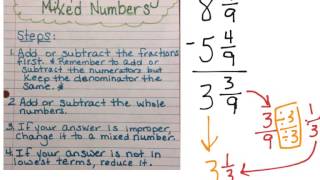 Mixed Numbers
Steps:
1. Add or subtract the fractions
first. * Remember to add or
subtract the numerators but
keep the denominator the
same. *
2. Add or subtract the whole
numbers.
3. If your answer is improper,
change it to a mixed number.
4. If your answer is not in
lowest terms, reduce it.
8 /9
- 5 4/9
3 3/9
3/9 ÷3/÷3 1/3
3 1/3